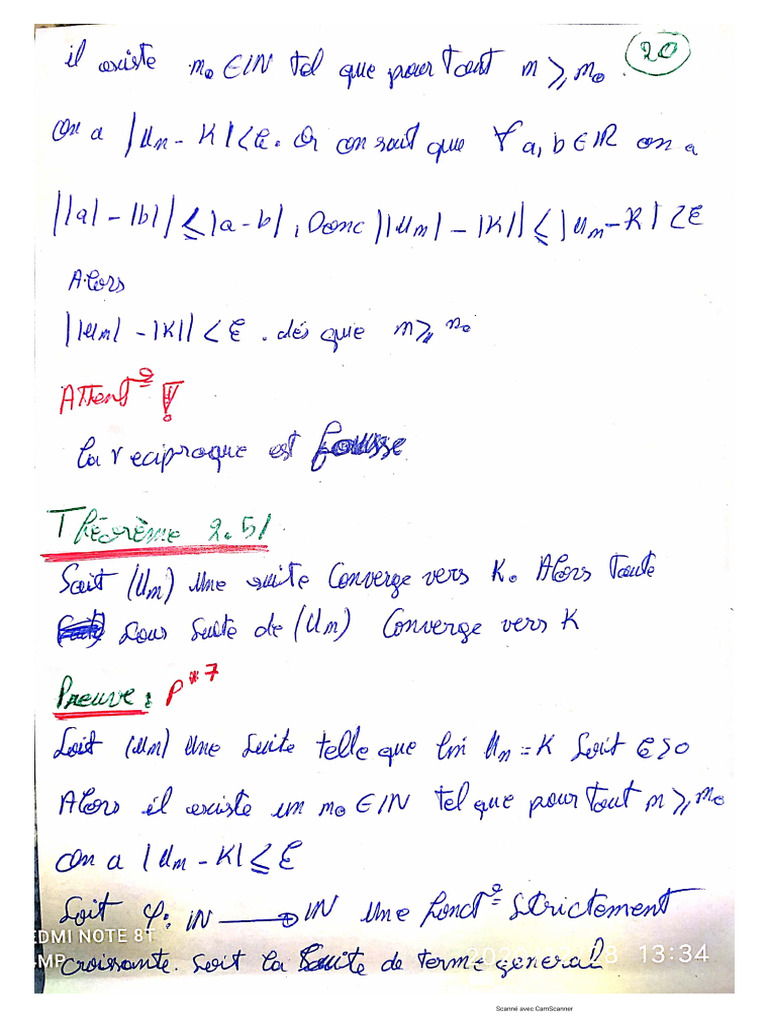 il existe n₀ ∈ IN tel que pour tout n ⩾ n₀. 20
on a |Un - K| < ε. Or on sait que ∀ a, b ∈ IR on a
||a| - |b|| ≤ |a - b|, Donc ||Un| - |K|| ≤ |Un - K| < ε
Alors
||Un| - |K|| < ε. dés que n ⩾ n₀
Attent° !
la réciproque est fousse
Théorème 2.5/
Soit (Un) une suite Converge vers K. Alors toute
sous suite de (Un) Converge vers K
Preuve : P"7
Soit (Un) une suite telle que lim Un = K Soit ε > 0
Alors il existe un n₀ ∈ IN tel que pour tout n ⩾ n₀
on a |Un - K| ≤ ε
Soit φ: IN → IN une fonct° Strictement
EDMI NOTE 8T
13:34
croissante. Soit la Suite de terme general
MP
Scanné avec CamScanner